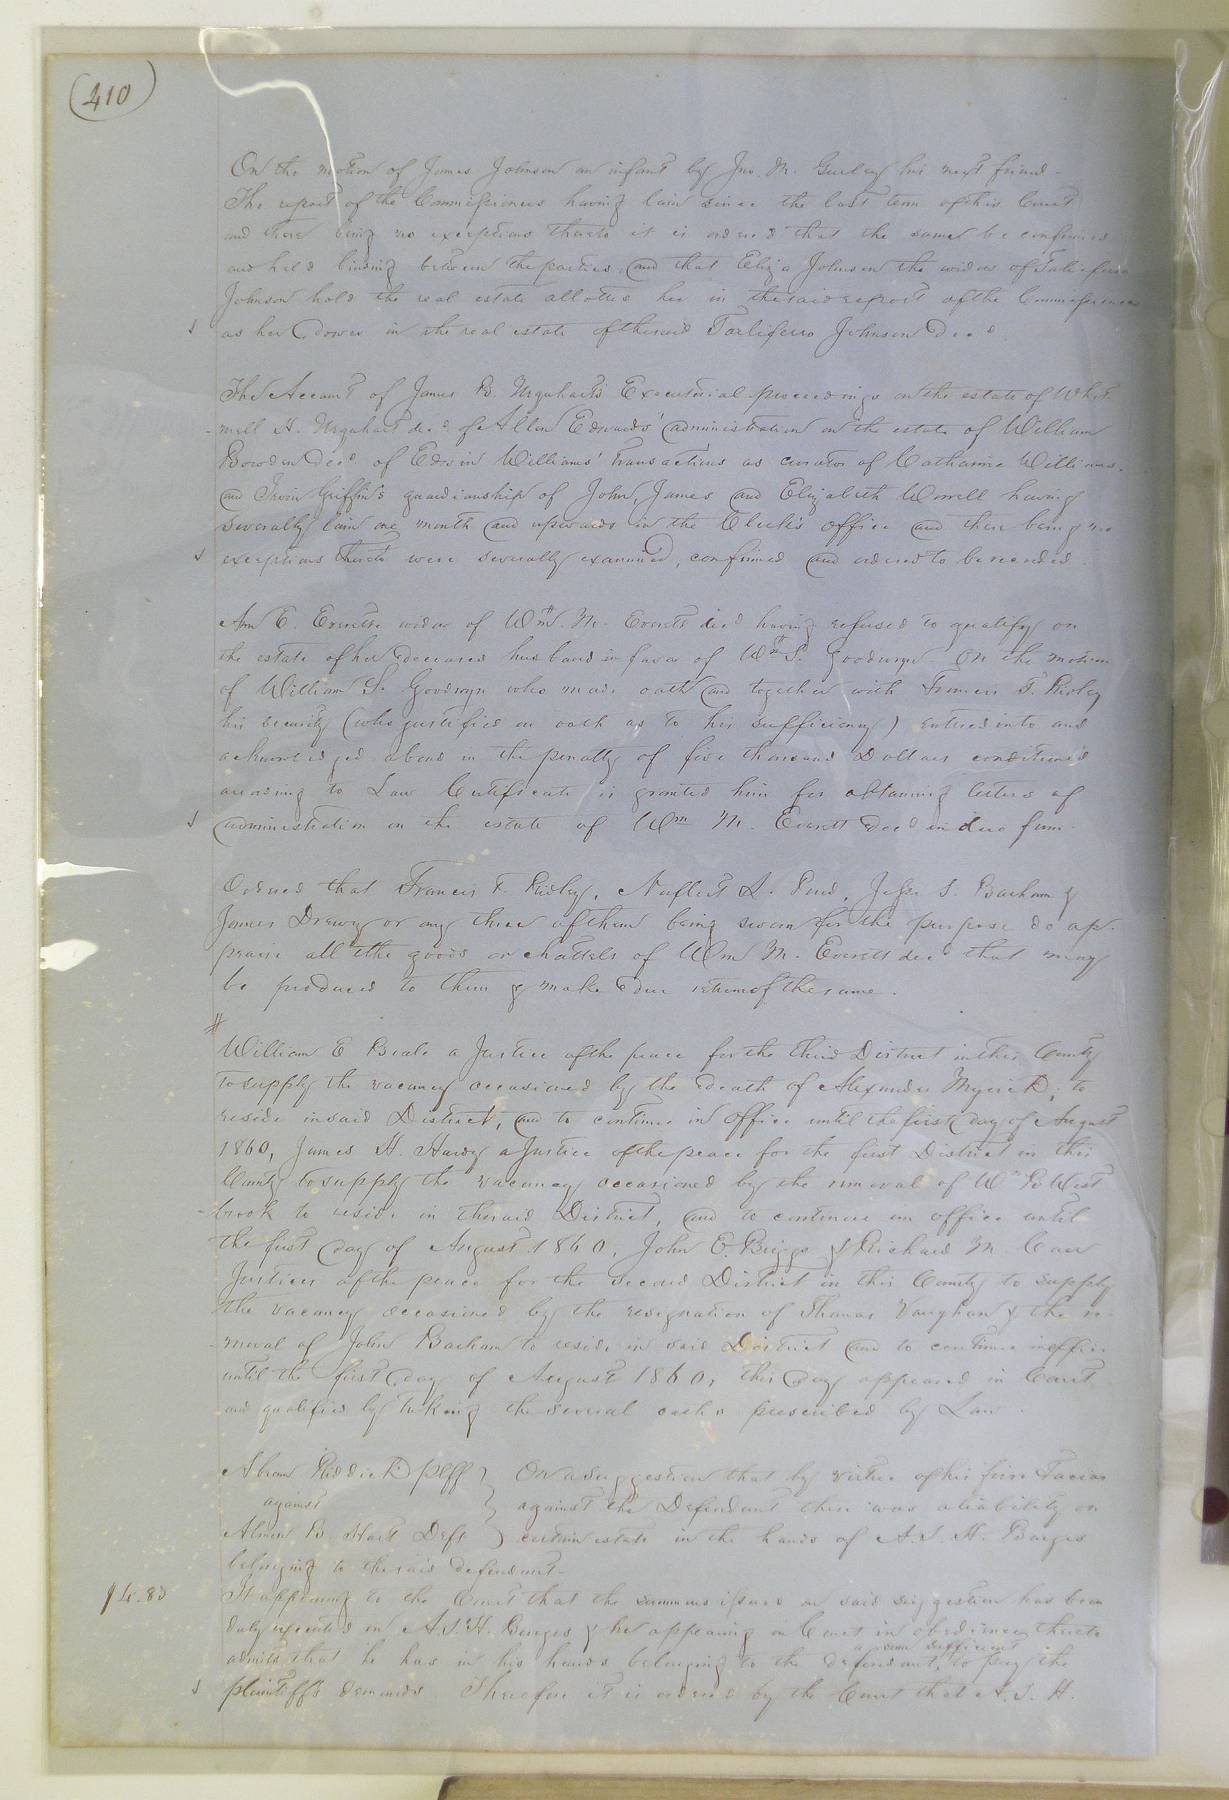 (410)
On the motion of James Johnson an infant by Jno. M. Gurley his next friend -
The report of the Commissioners having lain since the last term of this Court
and there being no exceptions thereto it is ordered that the same be confirmed
and held binding between the parties, and that Eliza Johnson the widow of Taliaferro
Johnson hold the real estate allotted her in the said report of the Commissioners
as her dower in the real estate of the said Taliferro Johnson Decd
The Account of James B. Urquhart's Executorial proceedings on the estate of Whit-
-mell H. Urquhart decd of Allen Edwards' administration on the estate of William
Bowden Decd of Edwin Williams' transactions as curator of Catharine Williams,
and Irvin Griffin's guardianship of John, James and Elizabeth Worrell having
severally lain one month and upwards in the Clerk's office and there being no
exceptions thereto were severally examined, confirmed and ordered to be recorded.
Ann E. Everett widow of Wm. M. Everett decd having refused to qualify on
the estate of her deceased husband in favor of Wm S. Goodwyn On the motion
of William S. Goodwyn who made oath and together with Francis T. Ridley
his security (who justified on oath as to his sufficiency) entered into and
acknowledged a bond in the penalty of five thousand Dollars conditioned
according to Law Certificate is granted him for obtaining letters of
administration on the estate of Wm M. Everett decd in due form.
Ordered that Francis T. Ridley, Newit Jesse S. Barham &
James Drewry or any three of them being sworn for the purpose do ap-
praise all the goods or chattels of Wm M. Everett decd that may
be produced to them & make due return of the same.
#
William E Beale a Justice of the peace for the third District in this County
to supply the vacancy occasioned by the death of Alexander Myrick, to
reside in said District, and to continue in office until the first day of August
1860, James H. Hardy a Justice of the peace for the first District in this
County to supply the vacancy occasioned by the removal of Wm B West
-brook to reside in the said District, and to continue in office until
the first day of August 1860, John E. Briggs & Richard M. Carr
Justices of the peace for the second District in this County to supply
the vacancy occasioned by the resignation of Thomas Vaughan & the re-
-moval of John Barham to reside in said District and to continue in office
until the first day of August 1860, this day appeared in Court
and qualified by taking the several oaths prescribed by Law.
Abram Riddick Plff } On a suggestion that by virtue of his fieri Facias
against } against the Defendant there was a liability on
B. Hart Deft } certain estate in the hands of A. S. H. Burges
belonging to the said defendant -
It appearing to the Court that the summons issued on said suggestion has been
duly executed on A. S. H. Burges & he appearing in Court in obedience thereto
a sum sufficient
admits that he has in his hands belonging to the defendant, to pay the
plaintiff's demands. Therefore it is ordered by the Court that A. S. H.